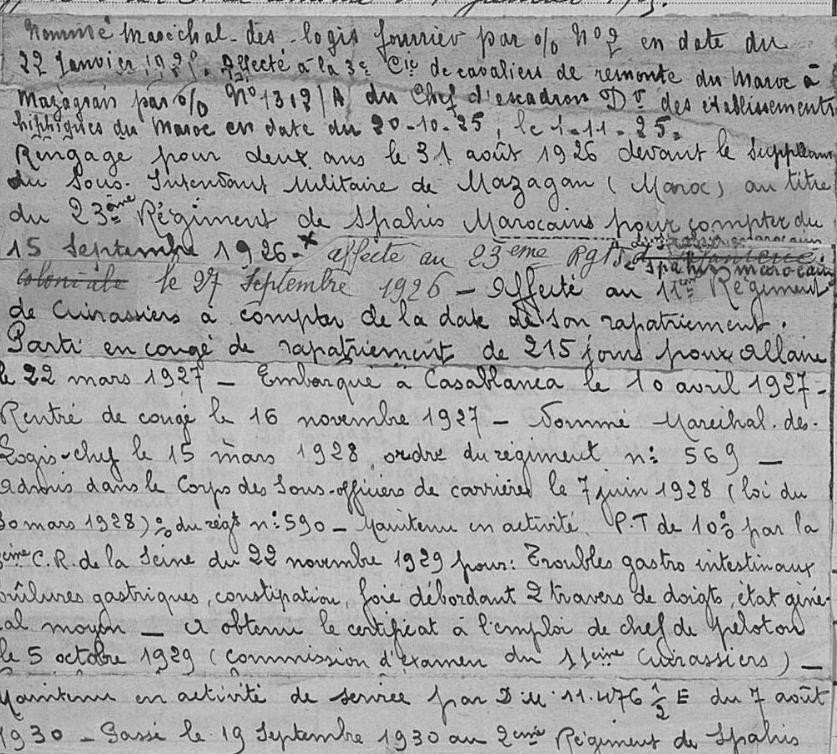 Nommé Maréchal-des-logis fourrier par o/o N°2 en date du
22 Janvier 1925. Affecté à la 3e Cie de cavaliers de remonte du Maroc à
Mazagan par o/o N° 1312/A du Chef d'escadron Dr des établissements
hippiques du Maroc en date du 20-10-25, le 1-11-25.
Rengagé pour deux ans le 31 août 1926 devant le Suppléant
du Sous-Intendant Militaire de Mazagan (Maroc) au titre
du 23ème Régiment de Spahis Marocains pour compter du
15 Septembre 1926-x affecté au 23eme Rgt d'Infanterie
de spahis marocains
coloniale le 27 Septembre 1926 - Affecté au 11e Régiment
de Cuirassiers à compter de la date de son rapatriement.
Parti en congé de rapatriement de 215 jours pour Allaire
le 22 mars 1927 - Embarqué à Casablanca le 10 avril 1927-
Rentré de congé le 16 novembre 1927 - Nommé Marechal-des-
Logis-chef le 15 mars 1928 ordre du régiment n: 569 -
Admis dans le Corps des Sous-officiers de carrière le 7 juin 1928 (loi du
30 mars 1928) o/o du régt n: 590 - Maintenu en activité. P.T de 10% par la
C.R. de la Seine du 22 novembre 1929 pour: Troubles gastro intestinaux
brûlures gastriques, constipation, foie débordant 2 travers de doigts, état géné-
ral moyen - A obtenu le certificat à l'emploi de chef de peloton
le 5 octobre 1929 (Commission d'examen du 11eme Cuirassiers) -
Maintenu en activité de service par D.M. 11.476 1/2 E du 7 août
1930 - Passé le 19 Septembre 1930 au 2eme Régiment de Spahis